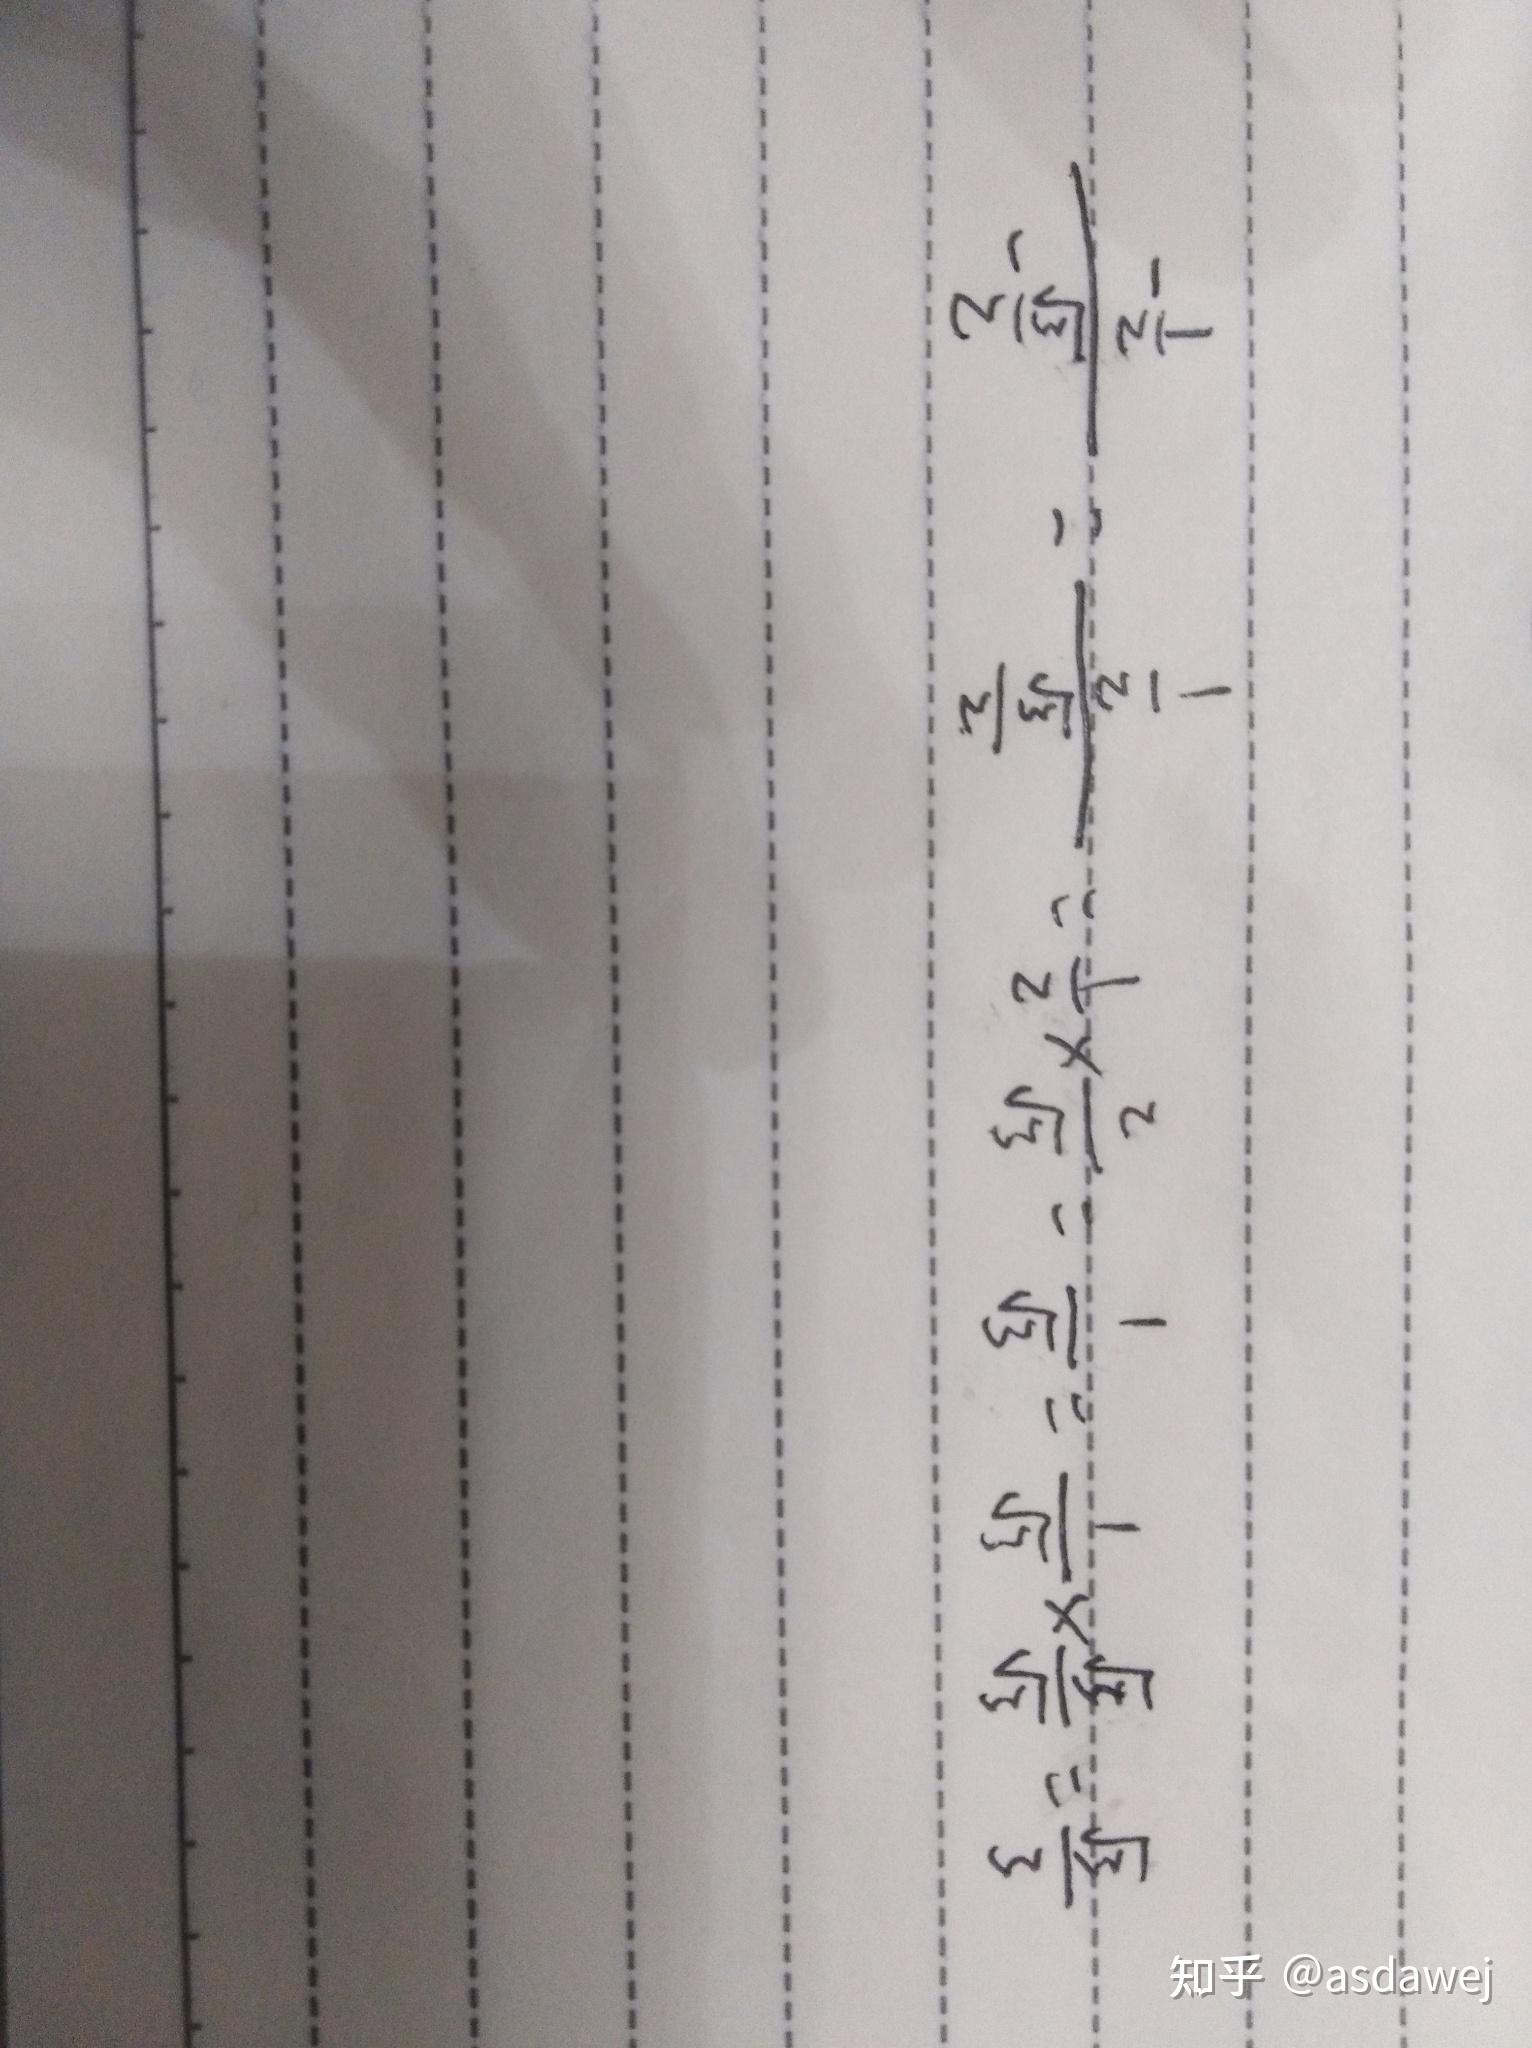 3/√3 = √3/√3 × √3/1 = √3/1 = √3/2 × 2/1 = (2/√3)/(2/1) = (2/√3 -)/(2/1 -)
知乎 @asdawej